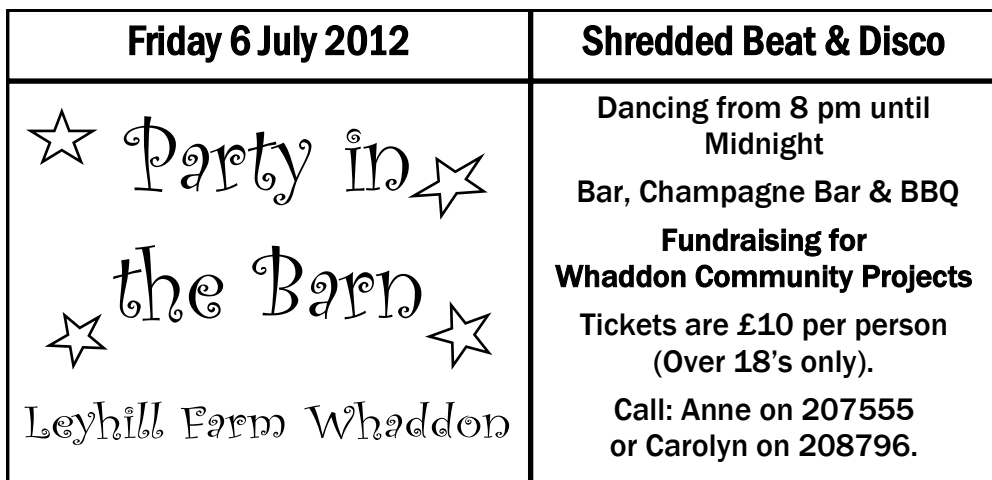 Friday 6 July 2012
Party in
the Barn
Leyhill Farm Whaddon
Shredded Beat & Disco
Dancing from 8 pm until
Midnight
Bar, Champagne Bar & BBQ
Fundraising for
Whaddon Community Projects
Tickets are £10 per person
(Over 18's only).
Call: Anne on 207555
or Carolyn on 208796.